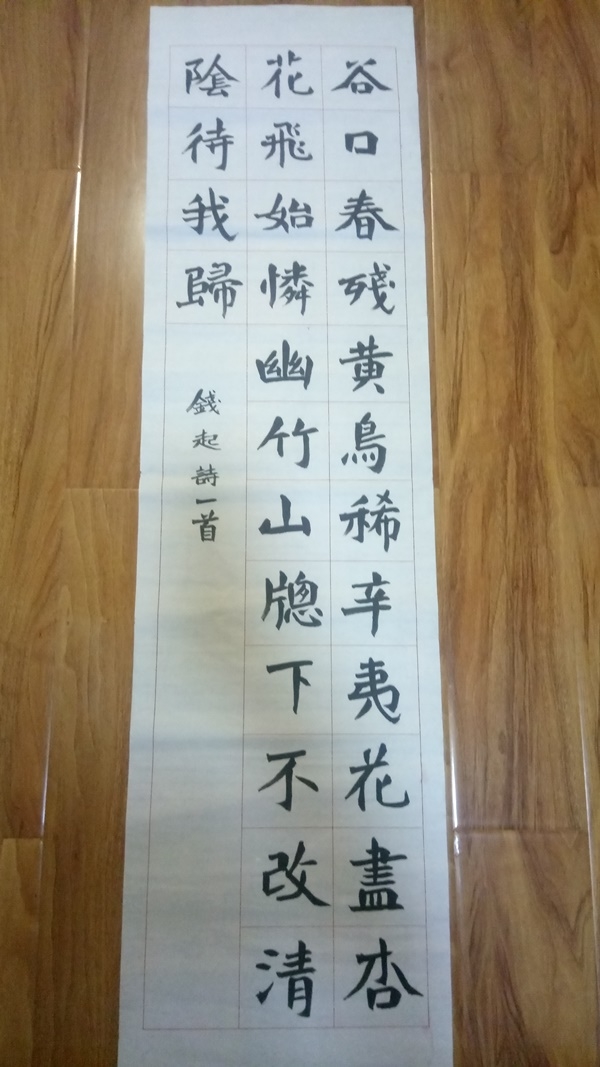 谷口春殘黃鳥稀辛夷花盡杏
花飛始憐幽竹山牎下不改清
陰待我歸
錢起詩一首